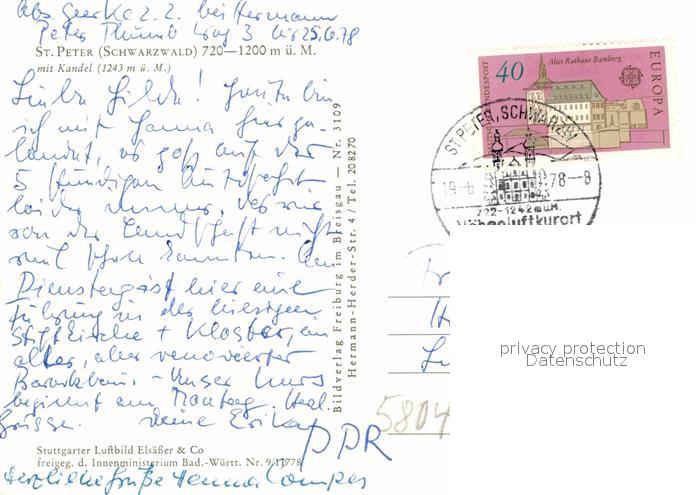 Abs. Geerke z. Z. bei Hermann
Peter Thumb Weg 3 bis 25.6.78
ST. PETER (SCHWARZWALD) 720—1200 m ü. M.
mit Kandel (1243 m ü. M.)
Liebe Hilde! Heute bin
ich mit Hanna hier ge-
landet, es goß auf der
5 stündigen Autofahrt
leider immer,
von der Landschaft nichts
sehen konnten. Am
Dienstag ist hier eine
Führung in der hiesigen
Stiftskirche + Kloster, ein
alter, aber renovierter
Barockbau. Unser Kurs
beginnt am Montag. Herzl.
Grüsse. Deine Erika
Stuttgarter Luftbild Elsäßer & Co
freigeg. d. Innenministerium Bad.-Württ. Nr. 9/11778
Herzliche Grüße Hanna
Bildverlag Freiburg im Breisgau — Nr. 3109
Hermann-Herder-Str. 4 / Tel. 208270
40
Altes Rathaus Bamberg
EUROPA
BUNDESPOST
ST. PETER, SCHWARZW
19-6 78-8
722-1242 m ü. M.
Höhenluftkurort
privacy protection
Datenschutz
5804
DDR